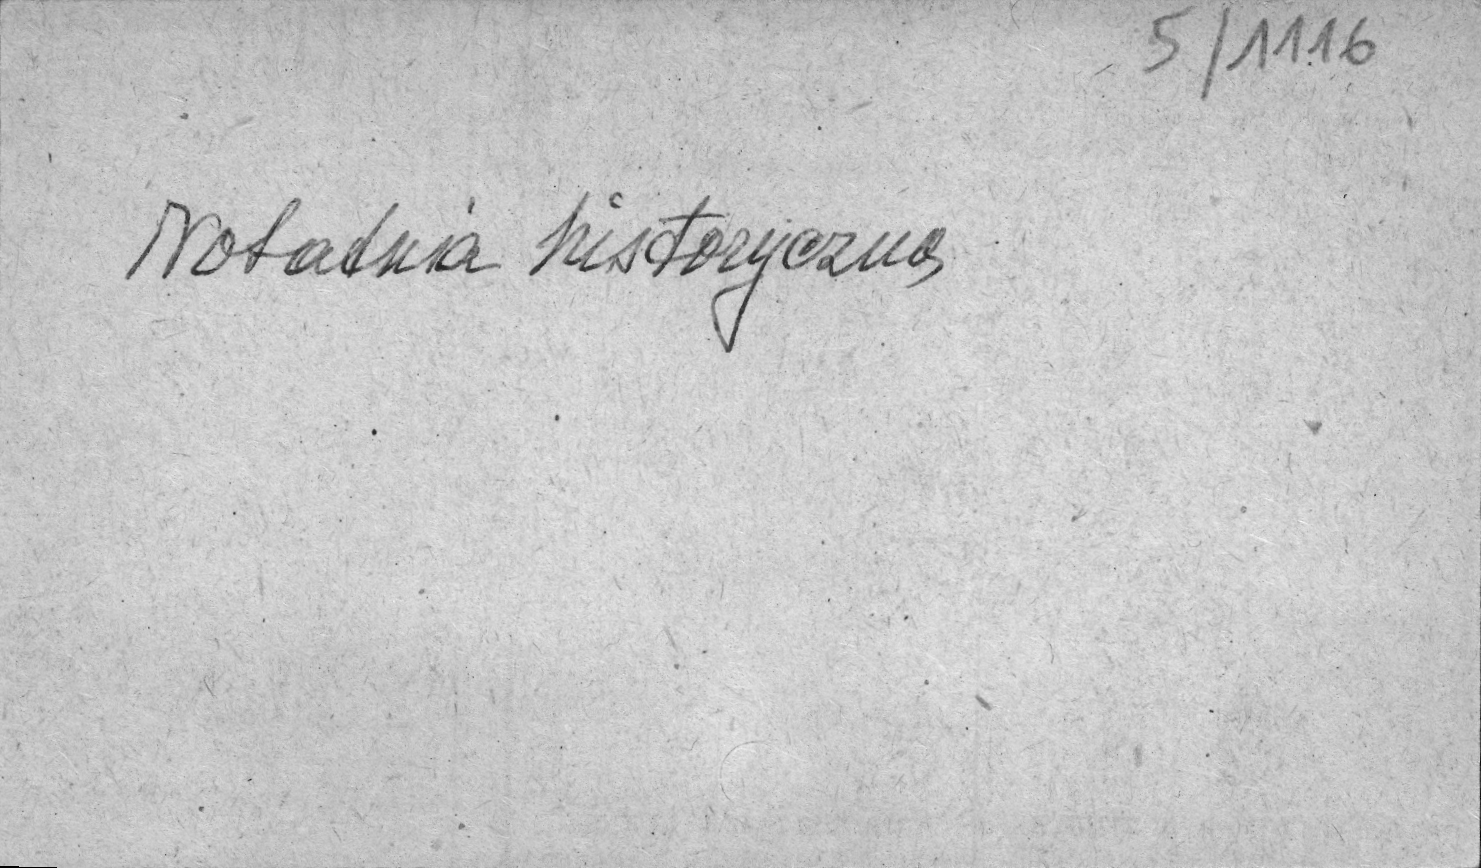 5/1116
Notatnia historyczna